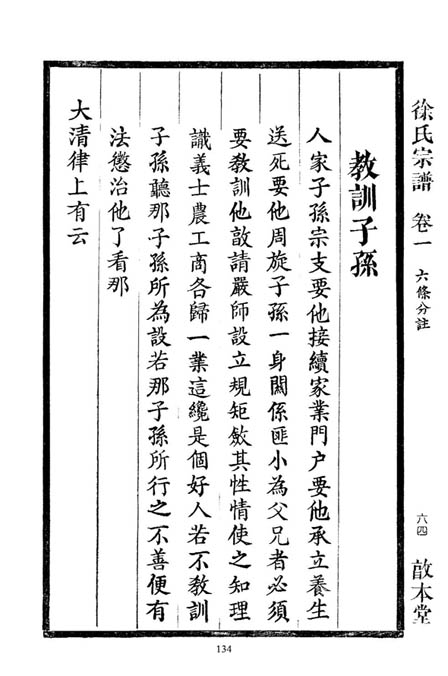 徐氏宗譜 卷一 六條分註 六四 敨本堂
教訓子孫
人家子孫宗支要他接續家業門户要他承立養生
送死要他周旋子孫一身關係匪小為父兄者必須
要教訓他敨請嚴師設立規矩斂其性情使之知理
識義士農工商各歸一業這纔是個好人若不教訓
子孫聽那子孫所為設若那子孫所行之不善便有
法懲治他了看那
大清律上有云
134